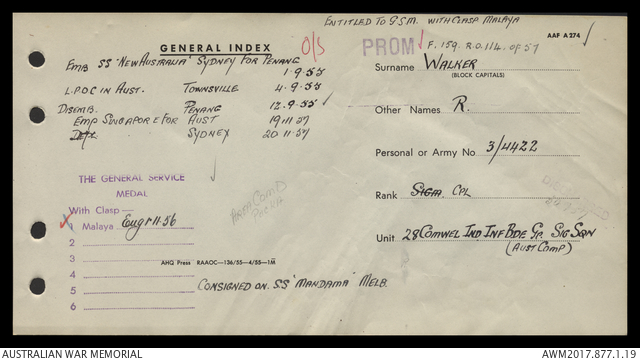 ENTITLED TO GSM. WITH CLASP MALAYA
AAF A274
GENERAL INDEX
O/S
PROM
F. 159. R.O. 1/4. of 57
EMB SS "NEW AUSTRALIA" SYDNEY FOR PENANG
1.9.55
L.P.O.C IN AUST. TOWNSVILLE 4.9.55
DISEMB. PENANG 12.9.55
EMB SINGAPORE FOR AUST 19.11.57
SYDNEY 20.11.57
Surname WALKER
(BLOCK CAPITALS)
Other Names R.
Personal or Army No 3/4422
Rank SIGM. CPL
Unit 28 COMWEL IND. INF BDE GP. SIG SQN
(AUST COMP)
THE GENERAL SERVICE
MEDAL
With Clasp—
1 Malaya
2
3
4
5
6
AHQ Press RAAOC—136/55—4/55—1M
CONSIGNED ON. SS "MANDAMA" MELB.
AUSTRALIAN WAR MEMORIAL
AWM2017.877.1.19